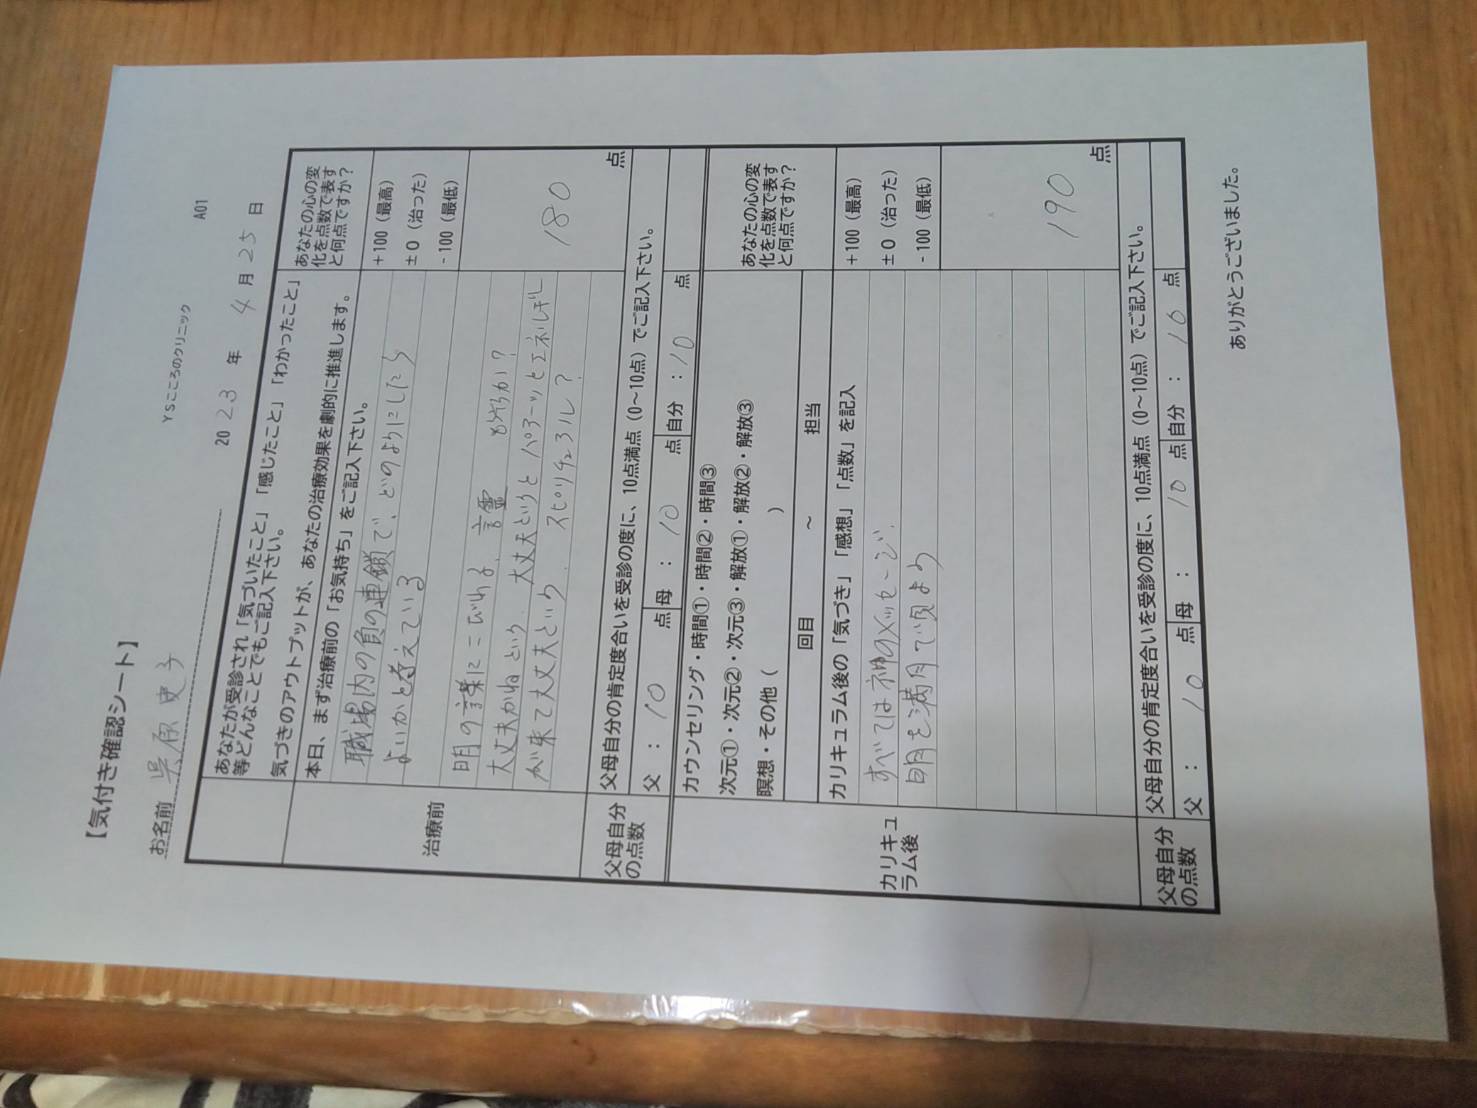 【気付き確認シート】
YSこころのクリニック A01
お名前 吳原 史子
2023年 4月 25日
あなたが受診され「気づいたこと」「感じたこと」「わかったこと」
等どんなことでもご記入下さい。
気づきのアウトプットが、あなたの治療効果を劇的に推進します。
あなたの心の変
化を点数で表す
と何点ですか？
治療前
本日、まず治療前の「お気持ち」をご記入下さい。
職場内の負の連鎖で、どのようにしたら
よいかと考えている
明の言葉にこびれる、言霊
大丈夫かねという、大丈夫というと パァーッとエネルギー
が来て大丈夫という、スピリチュアル？
+100（最高）
±0（治った）
-100（最低）
180 点
父母自分
の点数
父母自分の肯定度合いを受診の度に、10点満点（0～10点）でご記入下さい。
父： 10 点 母： 10 点 自分： 10 点
カリキュ
ラム後
カウンセリング・時間①・時間②・時間③
次元①・次元②・次元③・解放①・解放②・解放③
瞑想・その他（ ）
回目 ～ 担当
あなたの心の変
化を点数で表す
と何点ですか？
カリキュラム後の「気づき」「感想」「点数」を記入
すべては神のメッセージ、
明を満月で頃よう
+100（最高）
±0（治った）
-100（最低）
190 点
父母自分
の点数
父母自分の肯定度合いを受診の度に、10点満点（0～10点）でご記入下さい。
父： 10 点 母： 10 点 自分： 10 点
ありがとうございました。